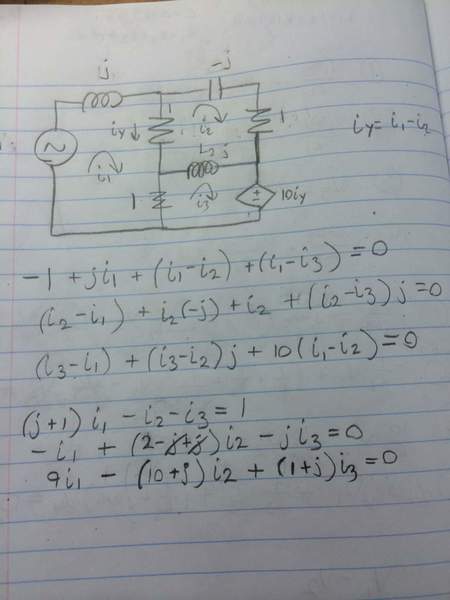 j -j
1
iy i2 1 iy = i1 - i2
i1 j
1 i3 10iy
-1 + ji1 + (i1 - i2) + (i1 - i3) = 0
(i2 - i1) + i2(-j) + i2 + (i2 - i3)j = 0
(i3 - i1) + (i3 - i2)j + 10(i1 - i2) = 0
(j+1) i1 - i2 - i3 = 1
-i1 + (2-j+j) i2 - ji3 = 0
9i1 - (10+j) i2 + (1+j) i3 = 0